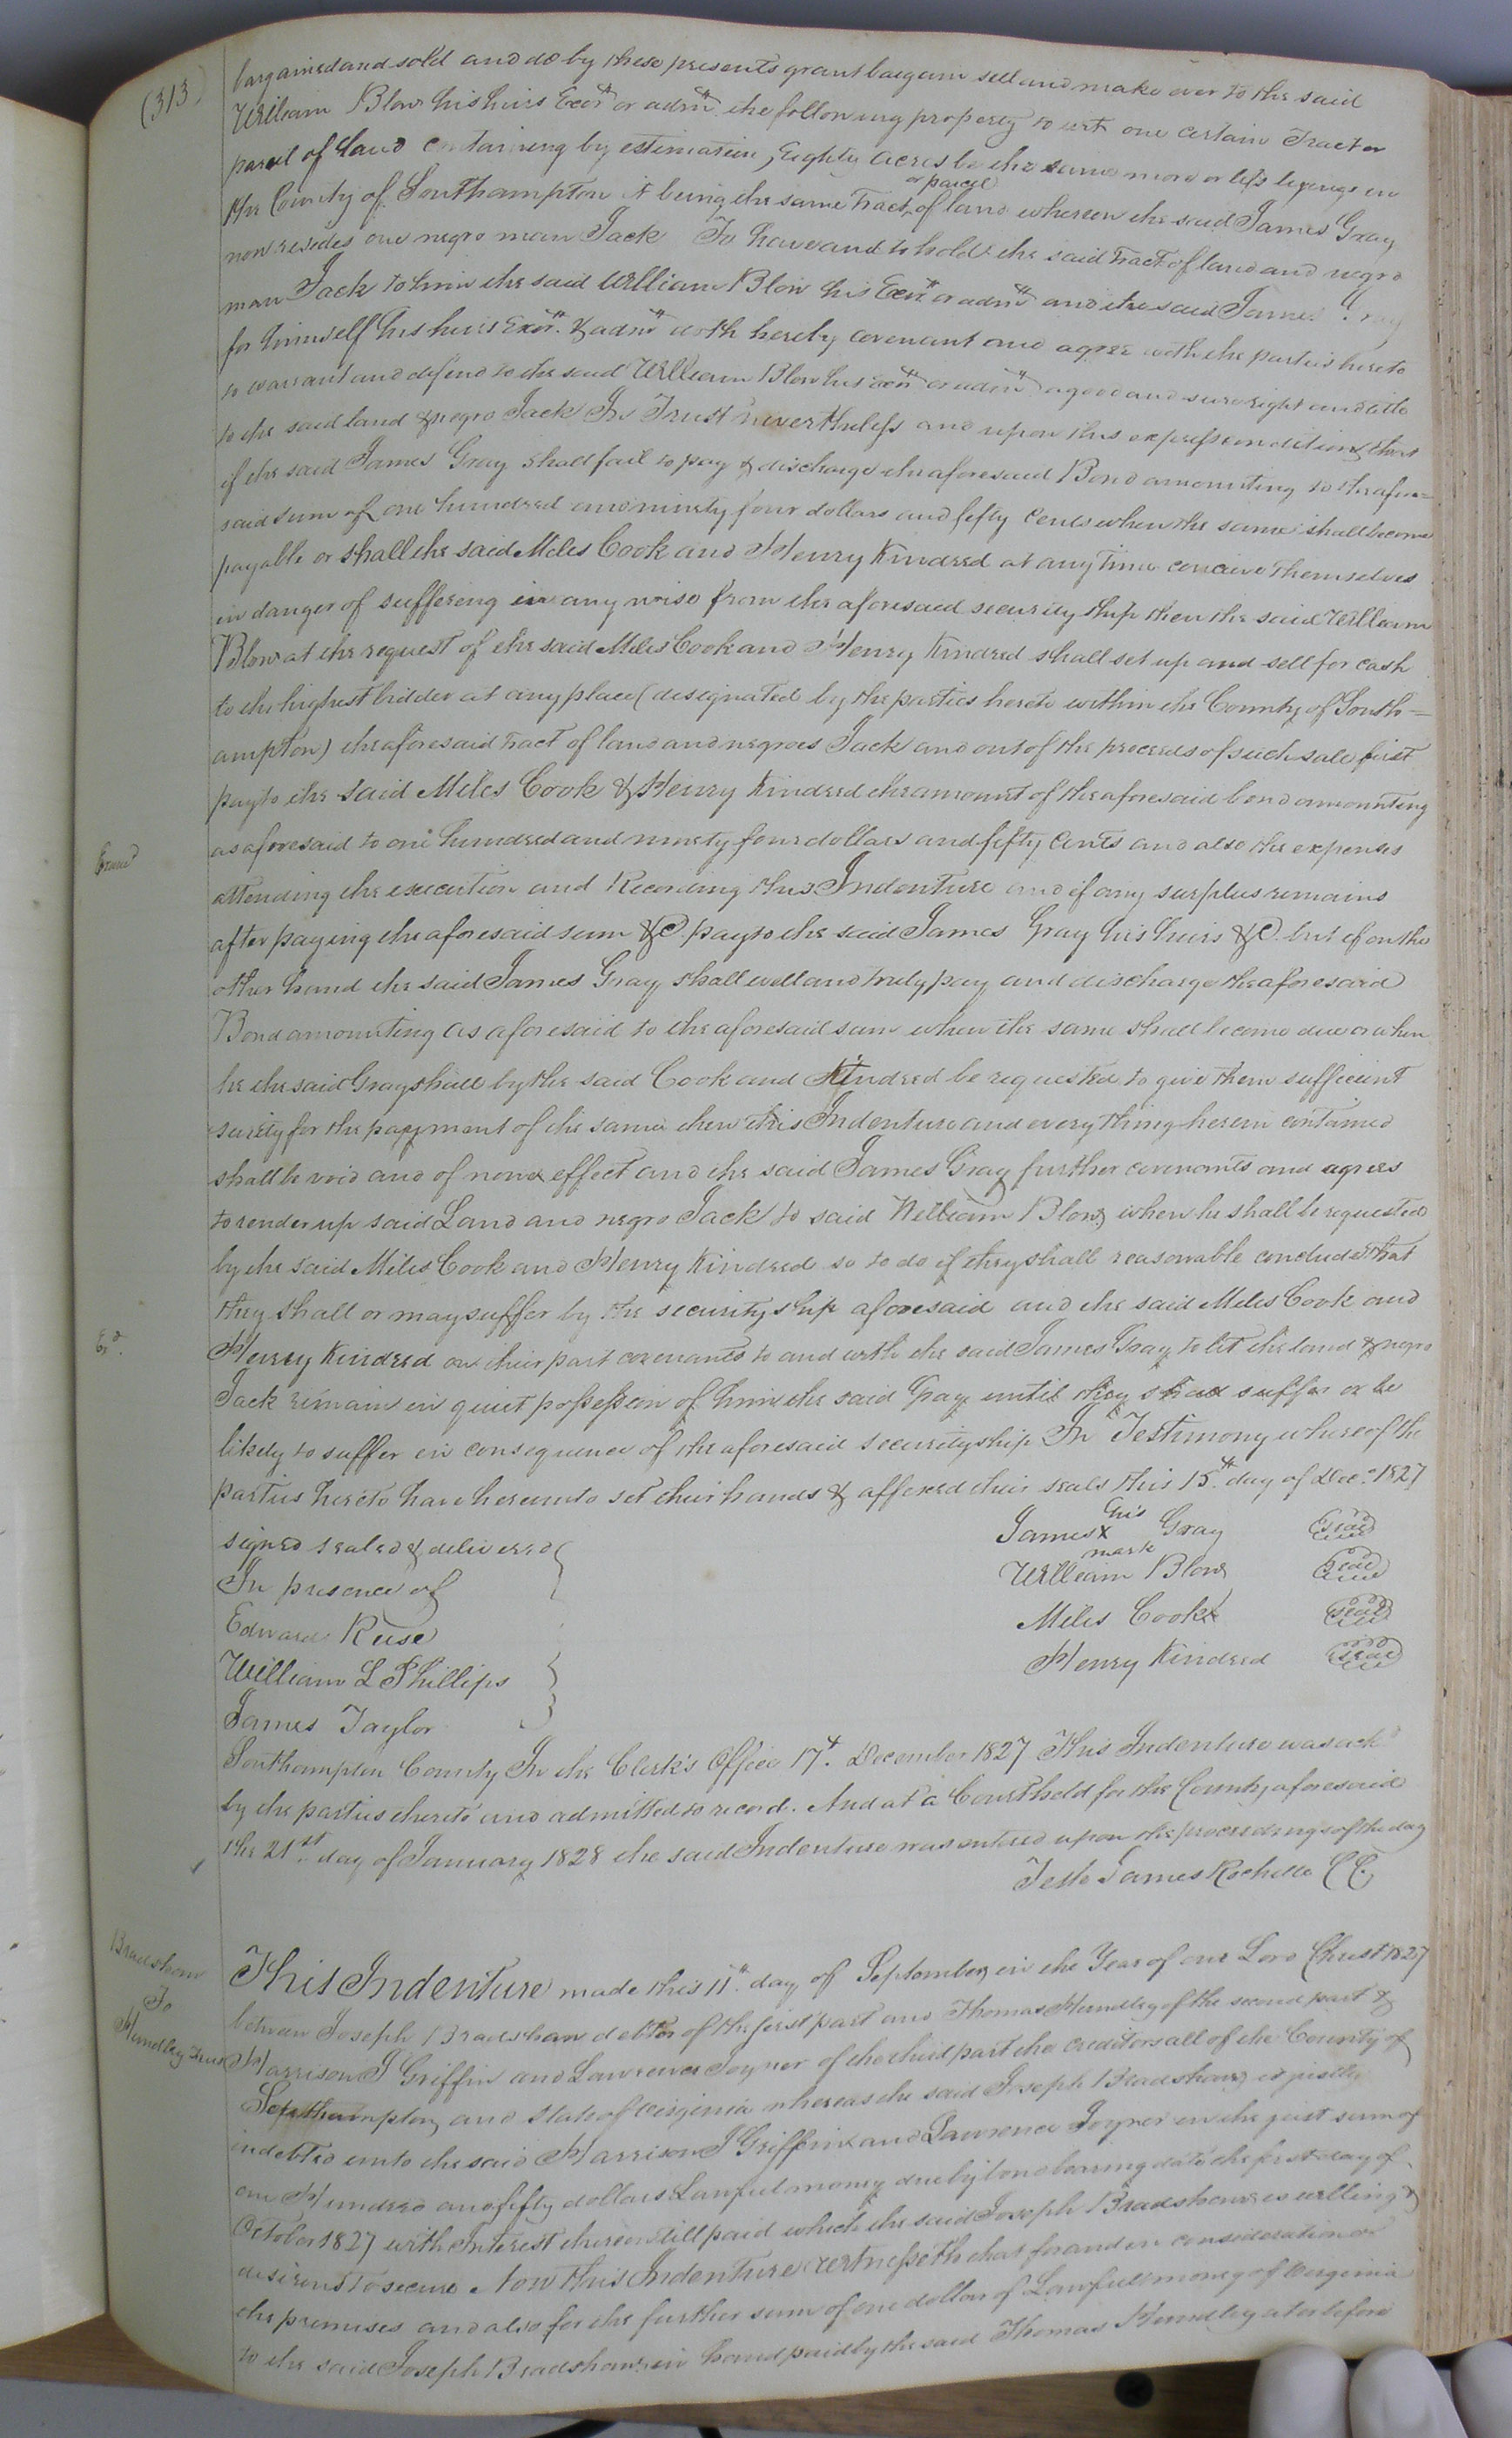 (313)
bargained and sold and do by these presents grant bargain sell and make over to the said
William Blow his heirs Exors or admrs the following property to wit one certain Tract or
parcel of land containing by estimation, Eighty acres be the same more or less lyings in
the County of Southampton it being the same Tract or parcel of land whereon the said James Gray
now resides one negro man Jack To have and to hold the said Tract of land and negro
man Jack to him the said William Blow his Exrs or admrs and the said James Gray
for himself his heirs Exors. & admrs doth hereby covenant and agree with the parties hereto
to warrant and defend to the said William Blow his exrs or admrs a good and sure right and title
to the said land & negro Jack In Trust nevertheless and upon this express condition, that
if the said James Gray shall fail to pay & discharge the aforesaid Bond amounting to the afore=
said sum of one hundred and ninety four dollars and fifty cents when the same shall become
payable or shall the said Miles Cook and Henry Kindred at any time conceive themselves
in danger of suffering in any wise from the aforesaid security ship then the said William
Blow at the request of the said Miles Cook and Henry Kindred shall set up and sell for cash
to the highest bidder at any place (designated by the parties hereto within the County of South=
ampton) the aforesaid Tract of land and negroes Jack and out of the proceeds of such sale first
pay to the said Miles Cook & Henry Kindred the amount of the aforesaid bond amounting
as aforesaid to one hundred and ninety four dollars and fifty cents and also the expenses
attending the execution and Recording this Indenture and if any surplus remains
after paying the aforesaid sum &C. pay to the said James Gray his heirs &C. but if on the
other hand the said James Gray shall well and truly pay and discharge the aforesaid
Bond amounting as aforesaid to the aforesaid sum when the same shall become due or when
he the said Gray shall by the said Cook and Kindred be requested to give them sufficient
surety for the payment of the same then this Indenture and every thing herein contained
shall be void and of none effect and the said James Gray further covenants and agrees
to render up said Land and negro Jack to said William Blow when he shall be requested
by the said Miles Cook and Henry Kindred so to do if they shall reasonable conclude that
they shall or may suffer by the security ship aforesaid and the said Miles Cook and
Henry Kindred on their part covenants to and with the said James Gray to let the land & negro
Jack remain in quiet possession of him the said Gray until they shall suffer or be
likely to suffer in consequence of the aforesaid securityship In Testimony whereof the
parties hereto have hereunto set their hands & affixed their seals this 15th day of Dec. 1827
signed sealed & delivered
In presence of
Edward Ruse
William L Phillips
James Taylor
James his x mark Gray seal
William Blow seal
Miles Cook seal
Henry Kindred seal
Southampton County In the Clerk's Office 17th. December 1827 This Indenture was ackd
by the parties thereto and admitted to record. And at a Court held for the County aforesaid
the 21st. day of January 1828 the said Indenture was entered upon the proceedings of the day
Teste James Rochelle CC
Bradshaw
To
Hundley Trust
This Indenture made this 11th day of September in the Year of our Lord Christ 1827
between Joseph Bradshaw debtor of the first part and Thomas Hundley of the second part &
Harrison J Griffin and Lawrence Joyner of the third part the creditors all of the County of
Southampton, and State of Virginia whereas the said Joseph Bradshaw is justly
indebted unto the said Harrison J Griffin and Lawrence Joyner in the just sum of
one Hundred and fifty dollars Lawful money due by bond bearing date the first day of
October 1827 with Interest thereon till paid which the said Joseph Bradshaw is willing &
desirous to secure Now this Indenture witnesseth that for and in consideration of
the premises and also for the further sum of one dollar of Lawfull money of Virginia
to the said Joseph Bradshaw in hand paid by the said Thomas Hundley at or before